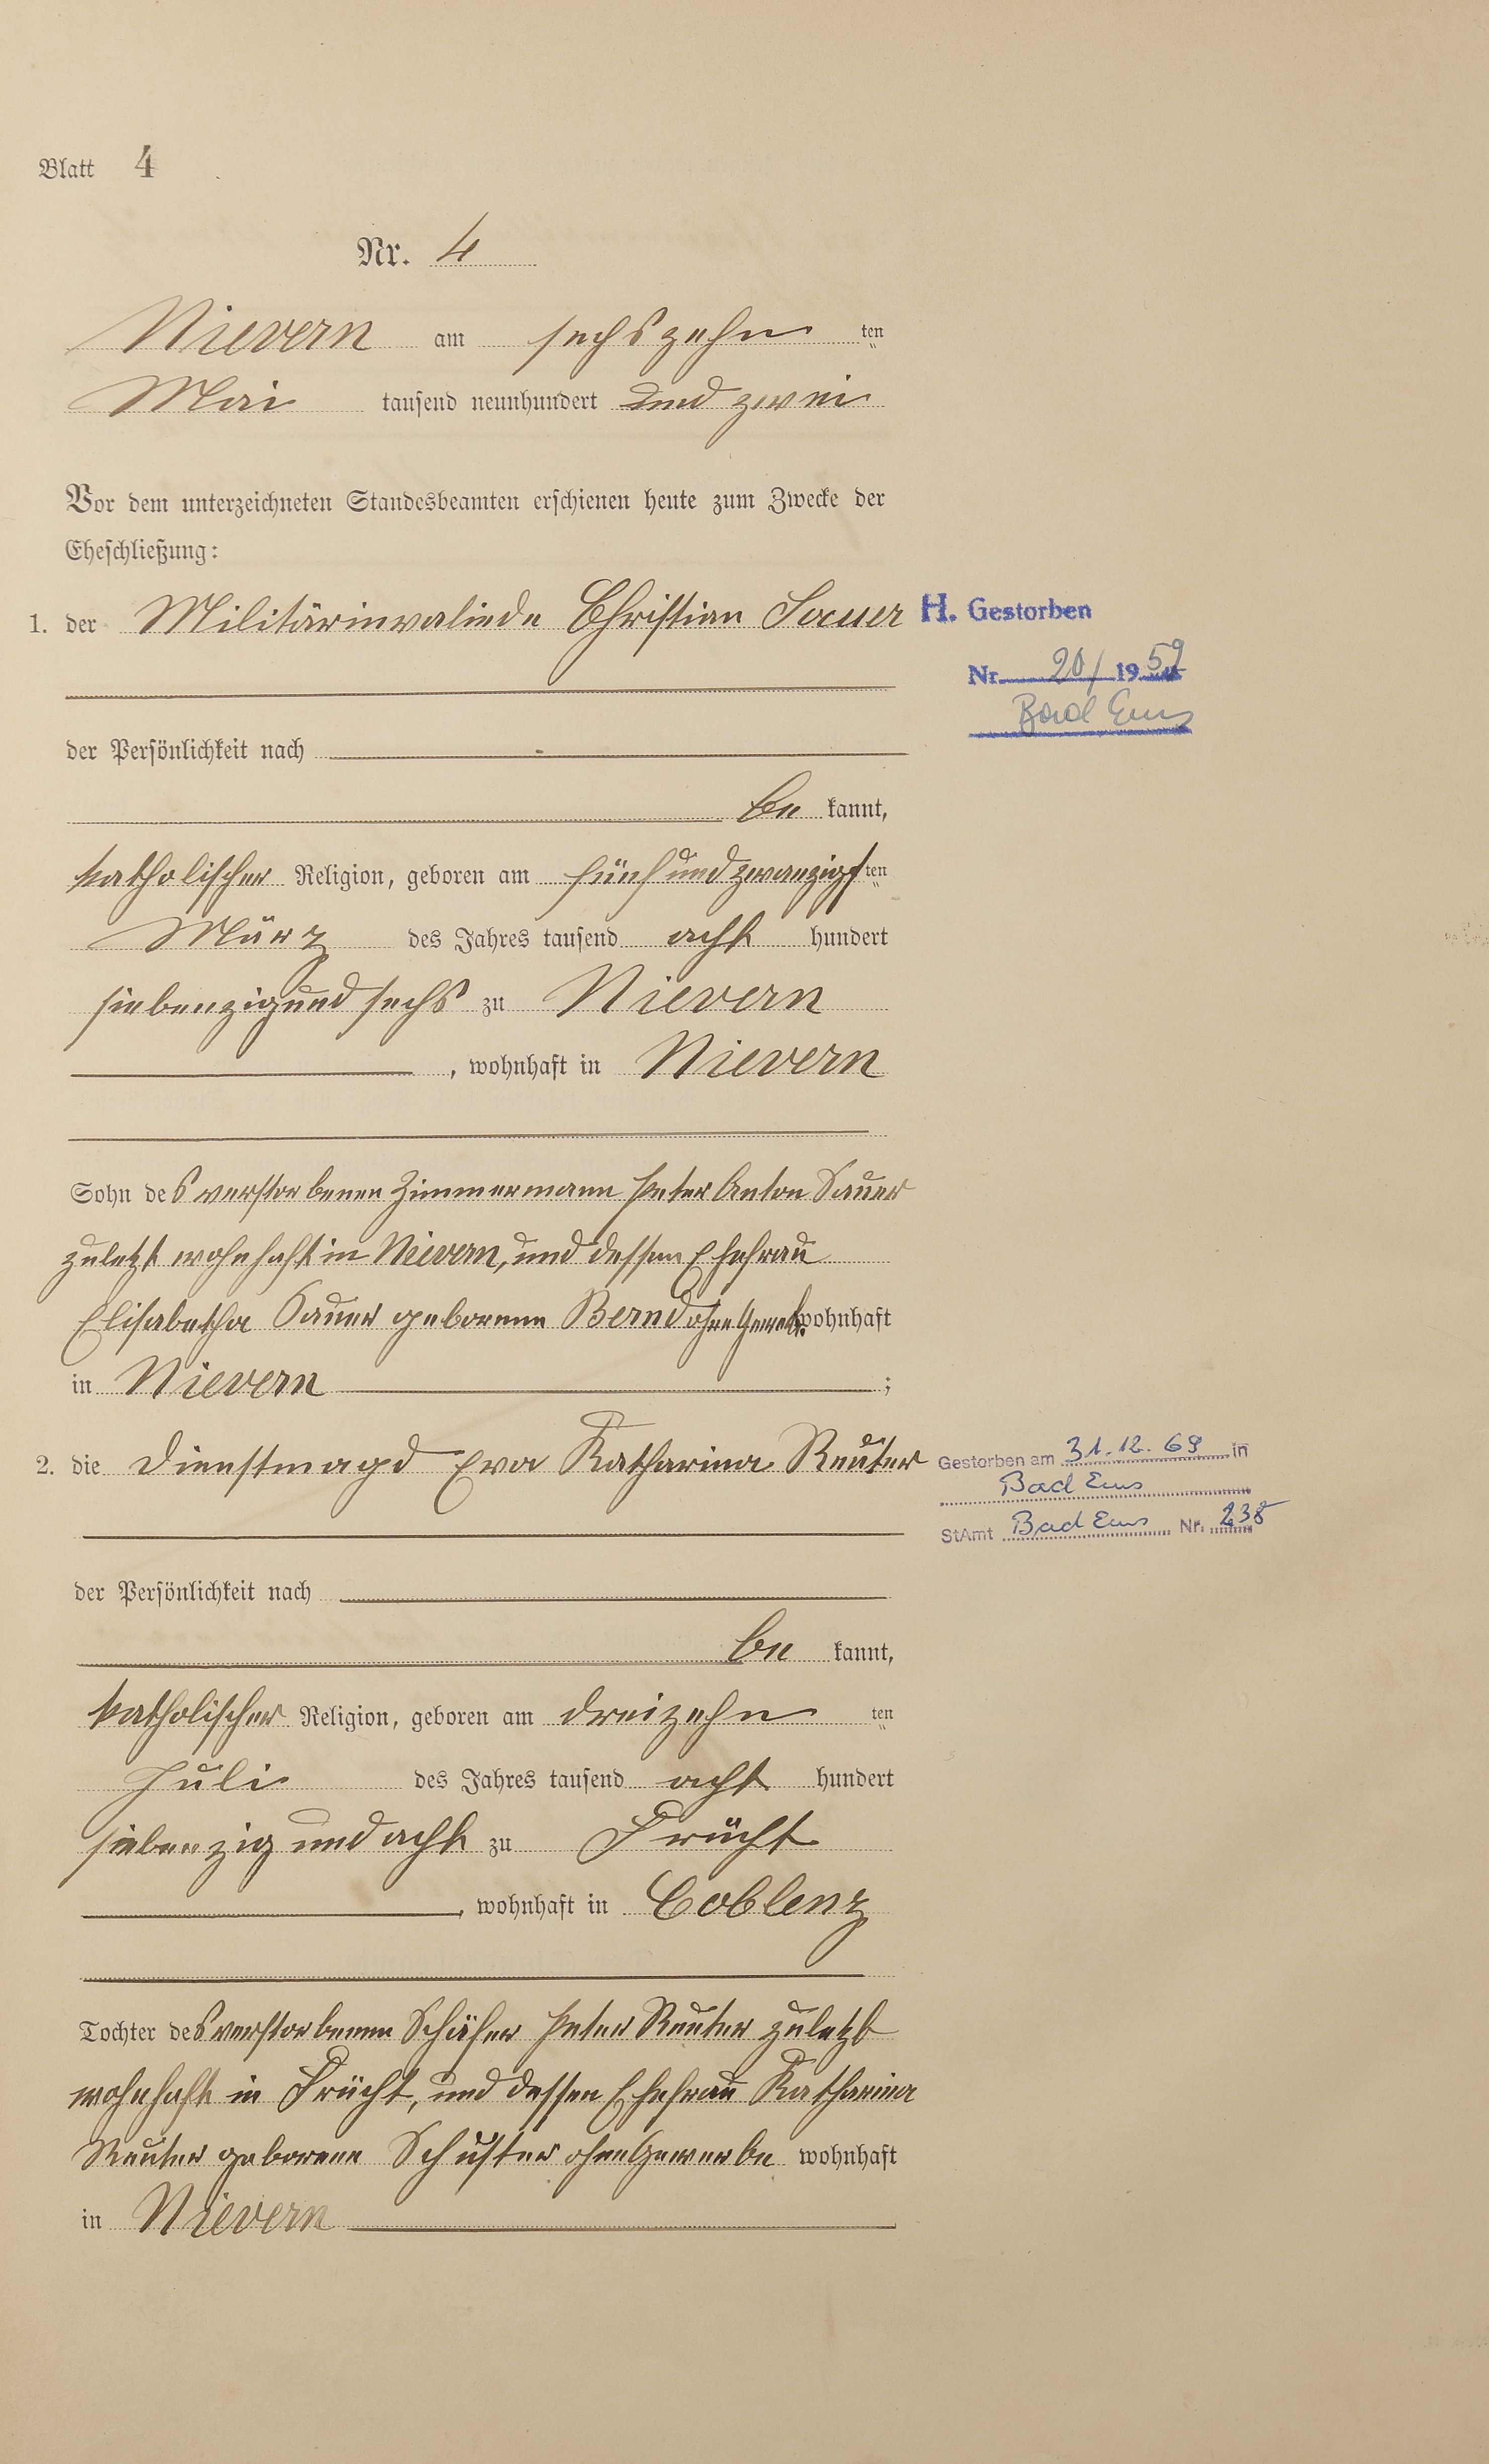 Blatt 4
Nr. 4
Nievern am sechszehn ten
Mai tausend neunhundert und zwei
Vor dem unterzeichneten Standesbeamten erschienen heute zum Zwecke der
Eheschließung:
1. der Militärinvaliede Christian Sauer
H. Gestorben
Nr. 20/1952
Bad Ems
der Persönlichkeit nach
be kannt,
katholischer Religion, geboren am fünfundzwanzigsten
März des Jahres tausend acht hundert
siebenzigundsechs zu Nievern
, wohnhaft in Nievern
Sohn des verstorbenen Zimmermann Peter Anton Sauer
zuletzt wohnhaft in Nievern, und dessen Ehefrau
Elisabetha Sauer geborene Bernd ohne Gewerb. wohnhaft
in Nievern ;
2. die Dienstmagd Eva Katharina Reuter
Gestorben am 31.12.69 in
Bad Ems
StAmt Bad Ems Nr. 238
der Persönlichkeit nach
be kannt,
katholischer Religion, geboren am dreizehn ten
Juli des Jahres tausend acht hundert
siebenzig und acht zu Frücht
, wohnhaft in Coblenz
Tochter des verstorbenen Schäfer Peter Reuter zuletzt
wohnhaft in Frücht, und dessen Ehefrau Katharina
Reuter geborene Schuster ohne Gewerbe wohnhaft
in Nievern